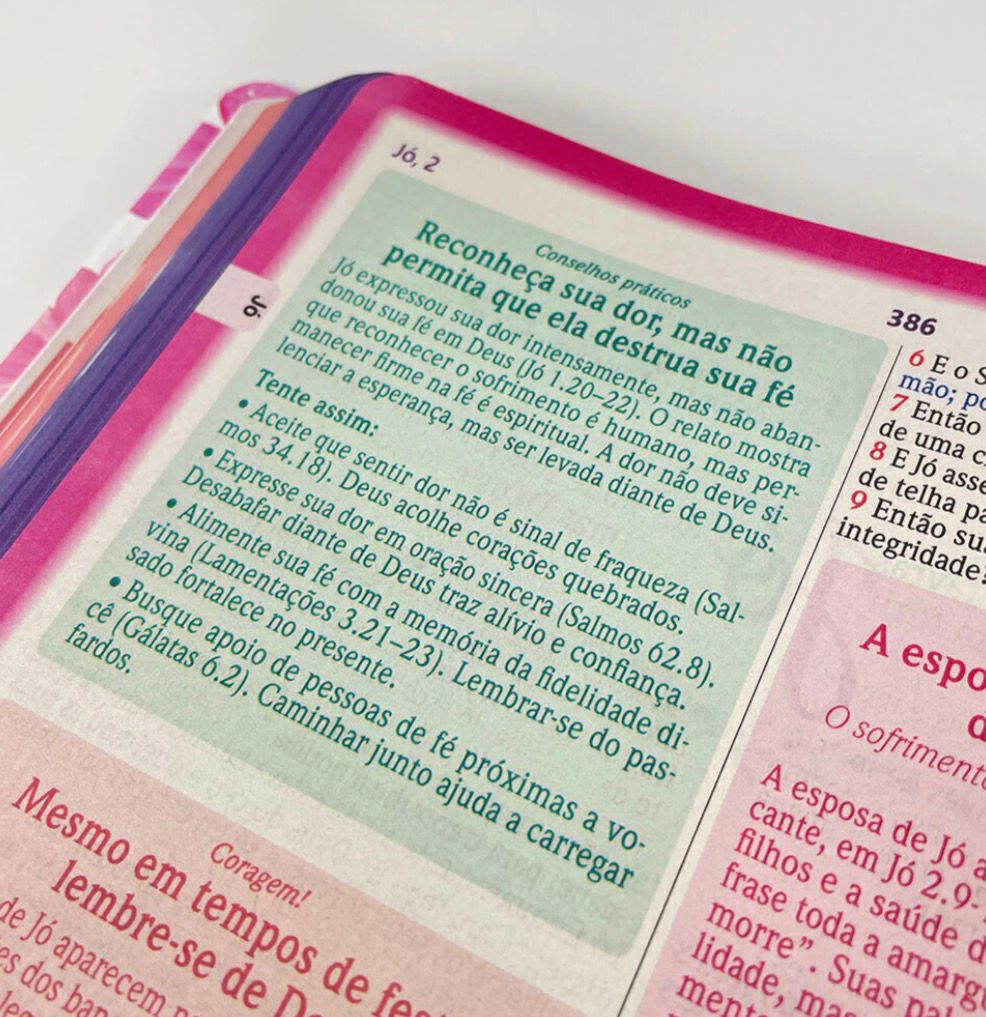 Jó, 2
386
Jó
Conselhos práticos
Reconheça sua dor, mas não
permita que ela destrua sua fé
Jó expressou sua dor intensamente, mas não aban-
donou sua fé em Deus (Jó 1.20–22). O relato mostra
que reconhecer o sofrimento é humano, mas per-
manecer firme na fé é espiritual. A dor não deve si-
lenciar a esperança, mas ser levada diante de Deus.
Tente assim:
• Aceite que sentir dor não é sinal de fraqueza (Sal-
mos 34.18). Deus acolhe corações quebrados.
• Expresse sua dor em oração sincera (Salmos 62.8).
Desabafar diante de Deus traz alívio e confiança.
• Alimente sua fé com a memória da fidelidade di-
vina (Lamentações 3.21–23). Lembrar-se do pas-
sado fortalece no presente.
• Busque apoio de pessoas de fé próximas a vo-
cê (Gálatas 6.2). Caminhar junto ajuda a carregar
fardos.
Coragem!
Mesmo em tempos de
lembre-se de
de Jó aparecem
dos
6 E o S
mão;
7 Então
de uma
8 E Jó
de telha
9 Então
integridade
A
O
A esposa de Jó
cante, em Jó 2.9-
filhos e a saúde
frase toda a
morre”. Suas